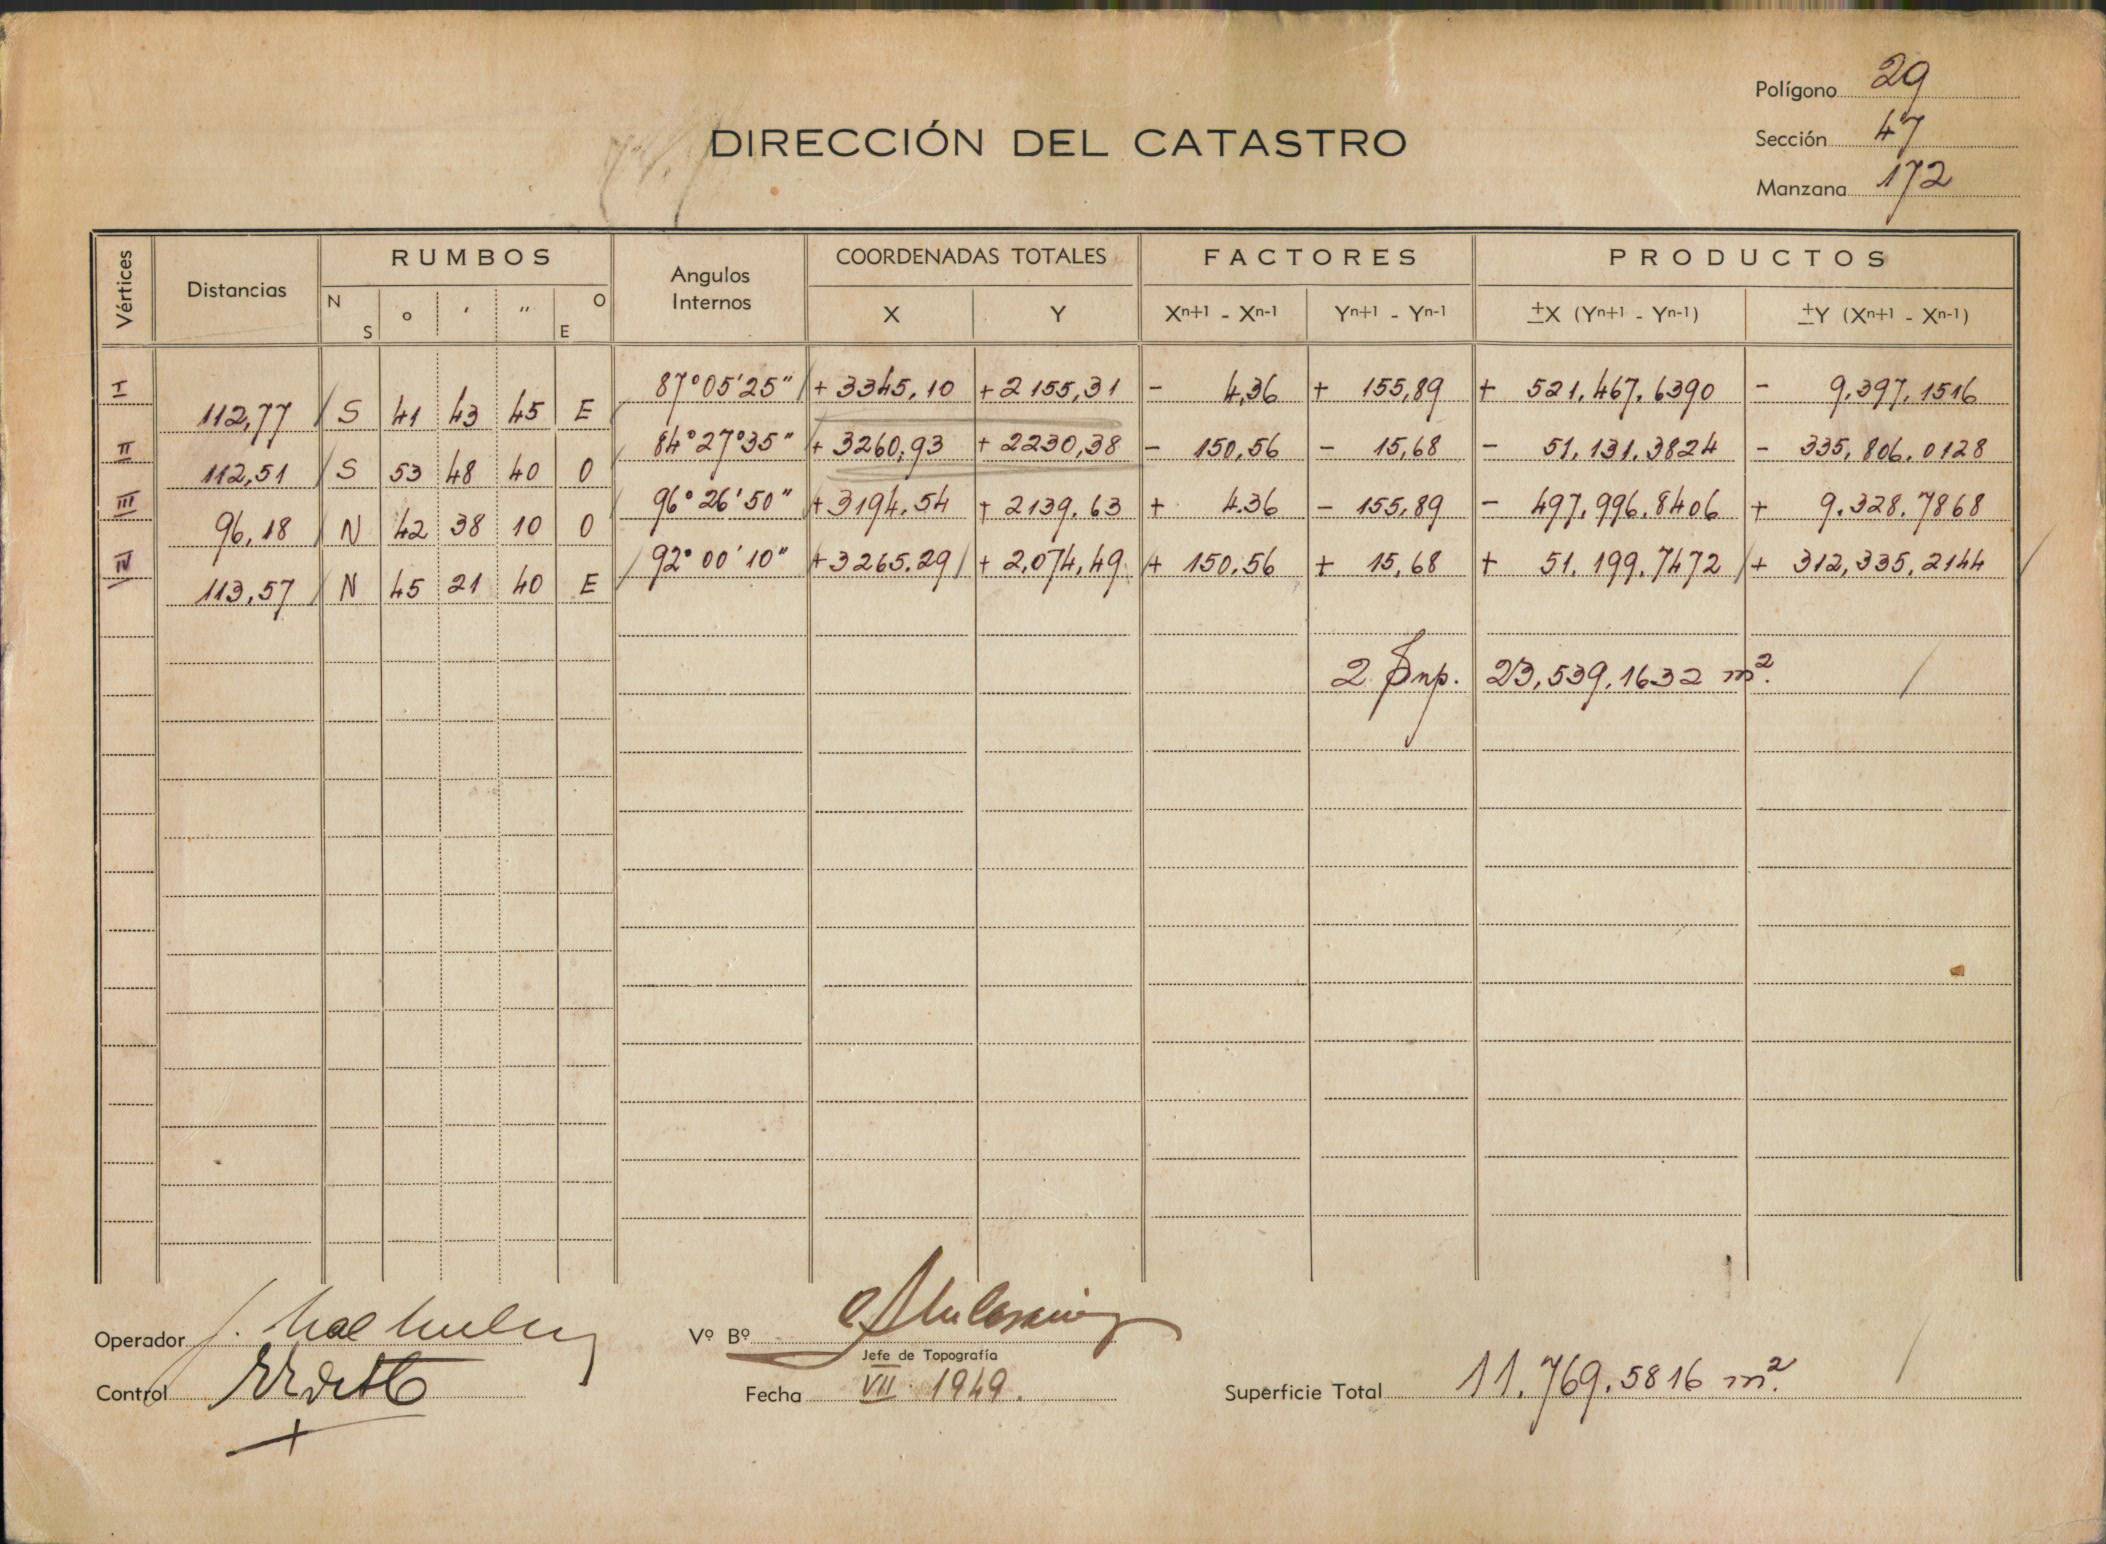 Polígono 29
DIRECCIÓN DEL CATASTRO
Sección 47
Manzana 172
Vértices Distancias RUMBOS Angulos Internos COORDENADAS TOTALES FACTORES PRODUCTOS
N S ° ' " O E X Y Xn+1 - Xn-1 Yn+1 - Yn-1 ±X (Yn+1 - Yn-1) ±Y (Xn+1 - Xn-1)
I 87°05'25" + 3345,10 + 2155,31 - 4,36 + 155,89 + 521,467.6390 - 9.397,1516
112,77 S 41 43 45 E
II 84°27°35" + 3260,93 + 2230,38 - 150,56 - 15,68 - 51,131.3824 - 335,806.0128
112,51 S 53 48 40 O
III 96°26'50" + 3194.54 + 2139.63 + 4.36 - 155,89 - 497,996.8406 + 9.328.7868
96,18 N 42 38 10 O
IV 92°00'10" + 3265.29 + 2,074,49 + 150,56 + 15,68 + 51,199.7472 + 312,335.2144
113,57 N 45 21 40 E
2 Sup. 23,539.1632 m².
Operador
Vº Bº
Jefe de Topografía
Control
Fecha VII 1949.
Superficie Total 11.769.5816 m².